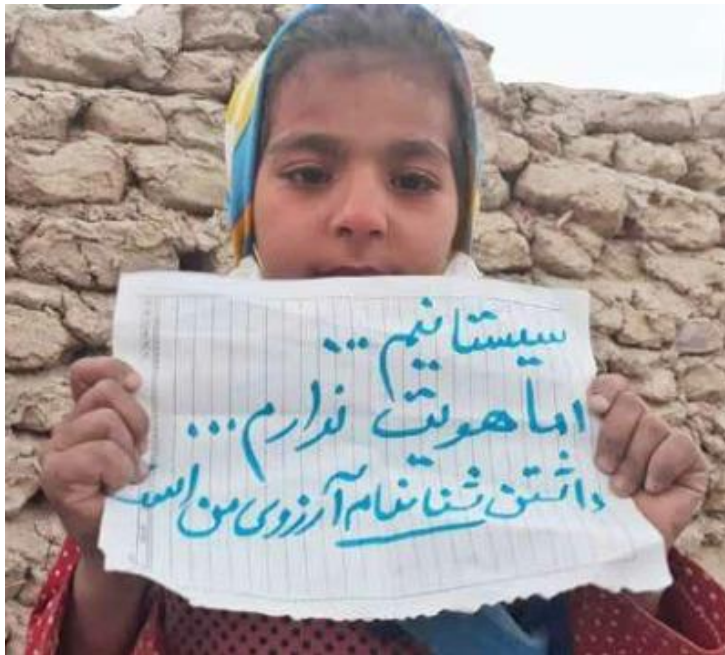 سیستانیم...
اما هویت ندارم...
داشتن شناسنامه آرزوی من است